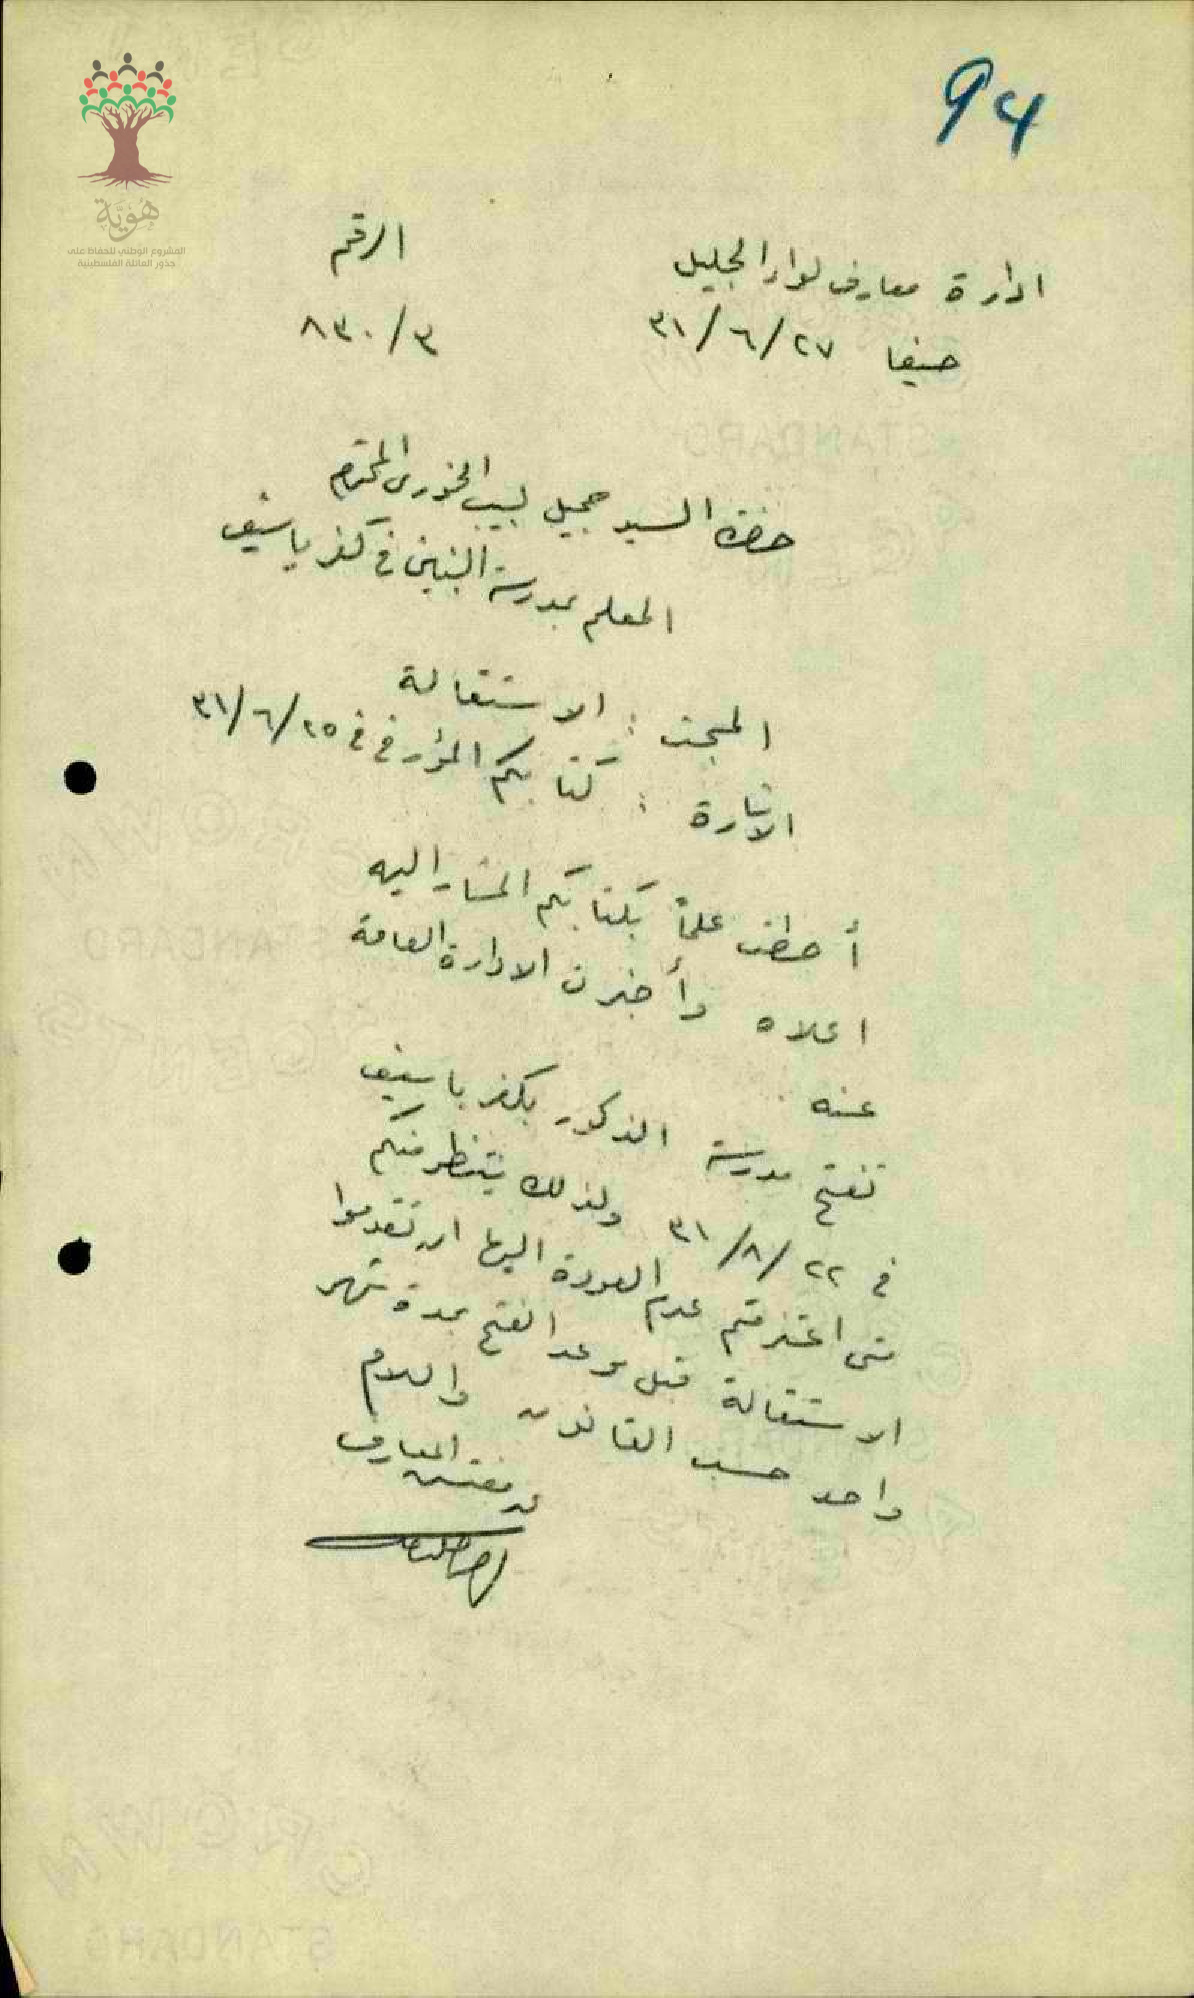 94
هوية
المشروع الوطني للحفاظ على
جذور العائلة الفلسطينية
ادارة معارف لواء الجليل الرقم
حيفا ٢٧/٦/٣١ ٨٣٠/٣
حضرة السيد جميل لبيب الخوري المحترم
المعلم بمدرسة البنين في كفر ياسيف
المبحث : الاستقالة
الاشارة : كتابكم المؤرخ في ٢٥/٦/٣١
أحطت علماً بكتابكم المشار اليه
اعلاه وأخبرت الادارة العامة
عنه
تفتح مدرسة الذكور بكفر ياسيف
في ٢٢/٨/٣١ ولذلك ينتظر منكم
متى اعتزمتم عدم العودة اليها ان تقدموا
الاستقالة قبل موعد الفتح بمدة شهر
واحد حسب القانون والسلام
مفتش المعارف